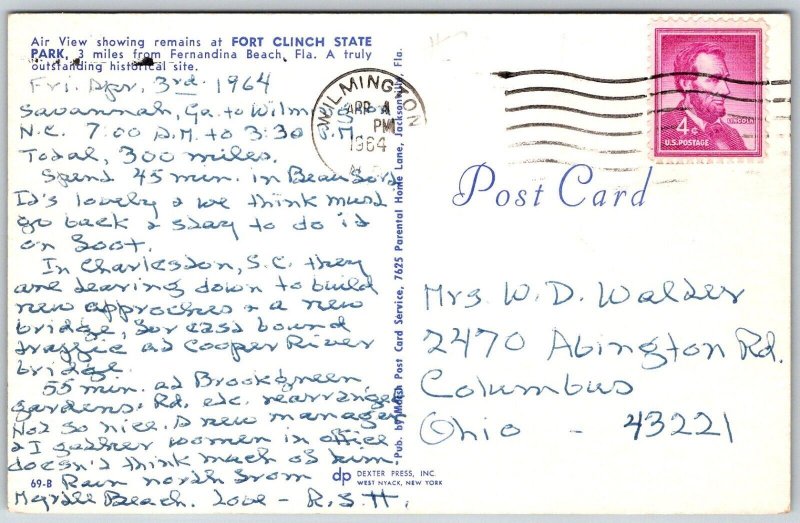 Air View showing remains at FORT CLINCH STATE
PARK, 3 miles from Fernandina Beach, Fla. A truly
outstanding historical site.
Fri. Apr. 3rd. 1964
Savannah, Ga. to Wilmington
N.C. 7:00 A.M. to 3:30 P.M.
Total, 300 miles.
Spend 45 min. in Beaufort
It's lovely & we think must
go back & stay to do it
on foot.
In Charleston, S.C. they
are tearing down to build
new approches & a new
bridge, for east bound
traffic at Cooper River
bridge.
55 min. at Brookgreen
gardens. Rd. etc. rearranged
Not so nice. A new manager
& I gather women in office
doesn't think much of him.
Rain north from
Myrtle Beach. Love - R.S.H.
69-B
Pub. by Marsh Post Card Service, 7625 Parental Home Lane, Jacksonville, Fla.
dp DEXTER PRESS, INC.
WEST NYACK, NEW YORK
WILMINGTON
APR 4
PM
1964
4¢
LINCOLN
U.S. POSTAGE
Post Card
Mrs. W. D. Walter
2470 Abington Rd.
Columbus
Ohio - 43221